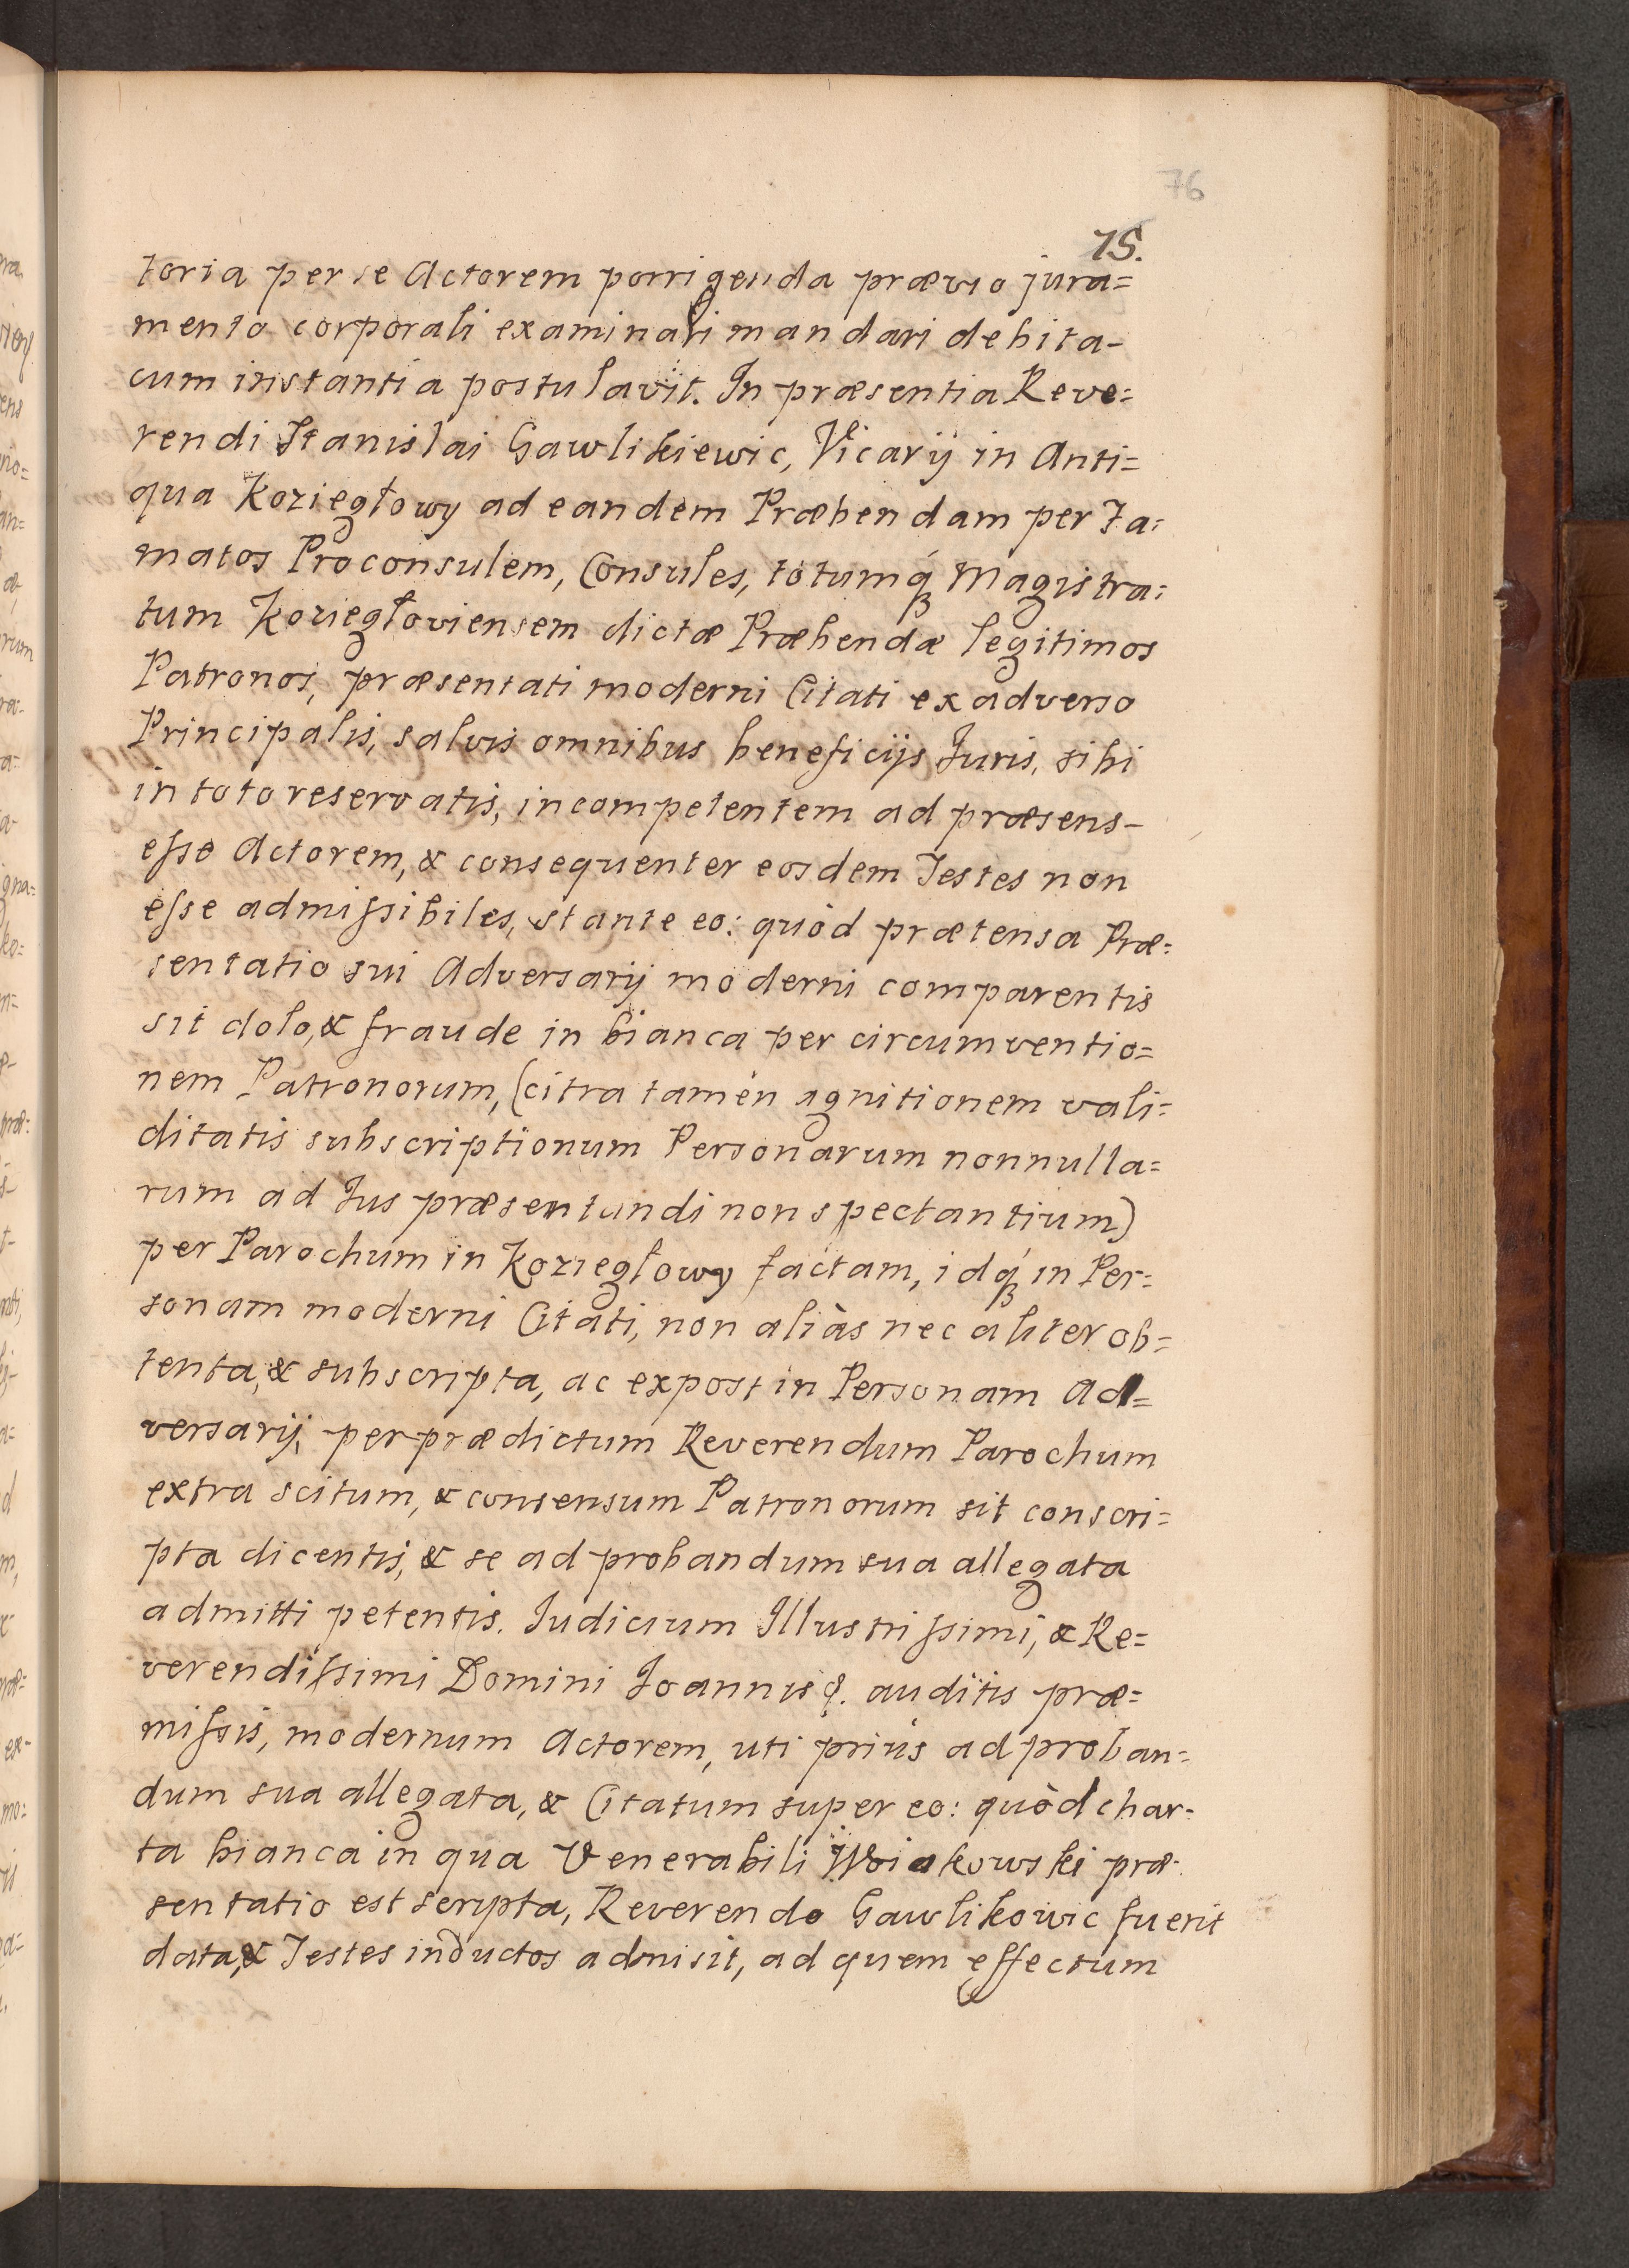 76
75.
toria per se Actorem porrigenda prævio jura=
mento corporali examinari mandari debita-
cum instantia postulavit. In præsentia Reve=
rendi Stanislai Gawlikiewic, Vicarij in Anti=
qua Koziegłowy ad eandem Præbendam per Fa=
matos Proconsulem, Consules, totumq́ꝫ Magistra=
tum Koziegłoviensem dictæ Præbendæ legitimos
Patronos, præsentati moderni Citati ex adverso
Principalis, salvis omnibus beneficijs Juris, sibi
in toto reservatis, incompetentem ad præsens-
eſse Actorem, & consequenter eosdem Testes non
eſse admiſsibiles, stante eo: quòd prætensa Præ=
sentatio sui Adversarij moderni comparentis
sit dolo, & fraude in bianca per circumventio=
nem Patronorum, (citra tamen agnitionem vali=
ditatis subscriptionum Personarum nonnulla=
rum ad Jus præsentandi non spectantium)
per Parochum in Koziegłowy factam, idq́ꝫ in Per=
sonam moderni Citati, non aliàs nec aliter ob=
tenta, & subscripta, ac expost in Personam Ad=
versarij, per prædictum Reverendum Parochum
extra scitum, & consensum Patronorum sit conscri=
pta dicentis, & se ad probandum sua allegata
admitti petentis. Judicium Illustriſsimi, & Re=
verendiſsimi Domini Joannis &. auditis præ=
miſsis, modernum Actorem, uti priùs ad proban=
dum sua allegata, & Citatum super eo: quòd char-
ta bianca in qua Venerabili Wiakowski præ-
sentatio est scripta, Reverendo Gawlikowic fuerit
data, & Testes inductos admisit, ad quem effectum